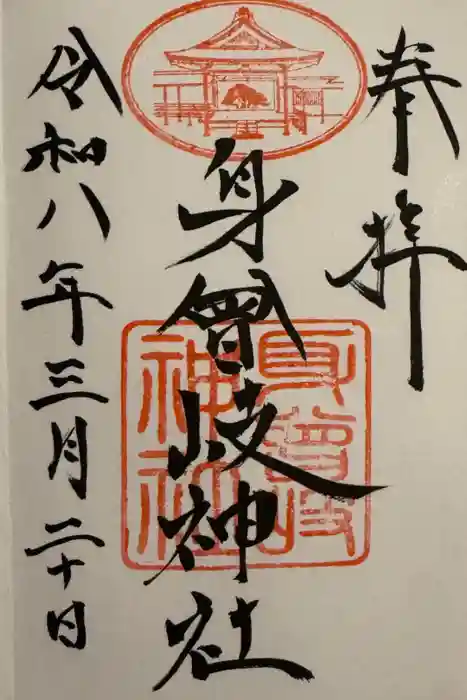 奉拝
身曾岐神社
身曾岐神社
令和八年三月二十日